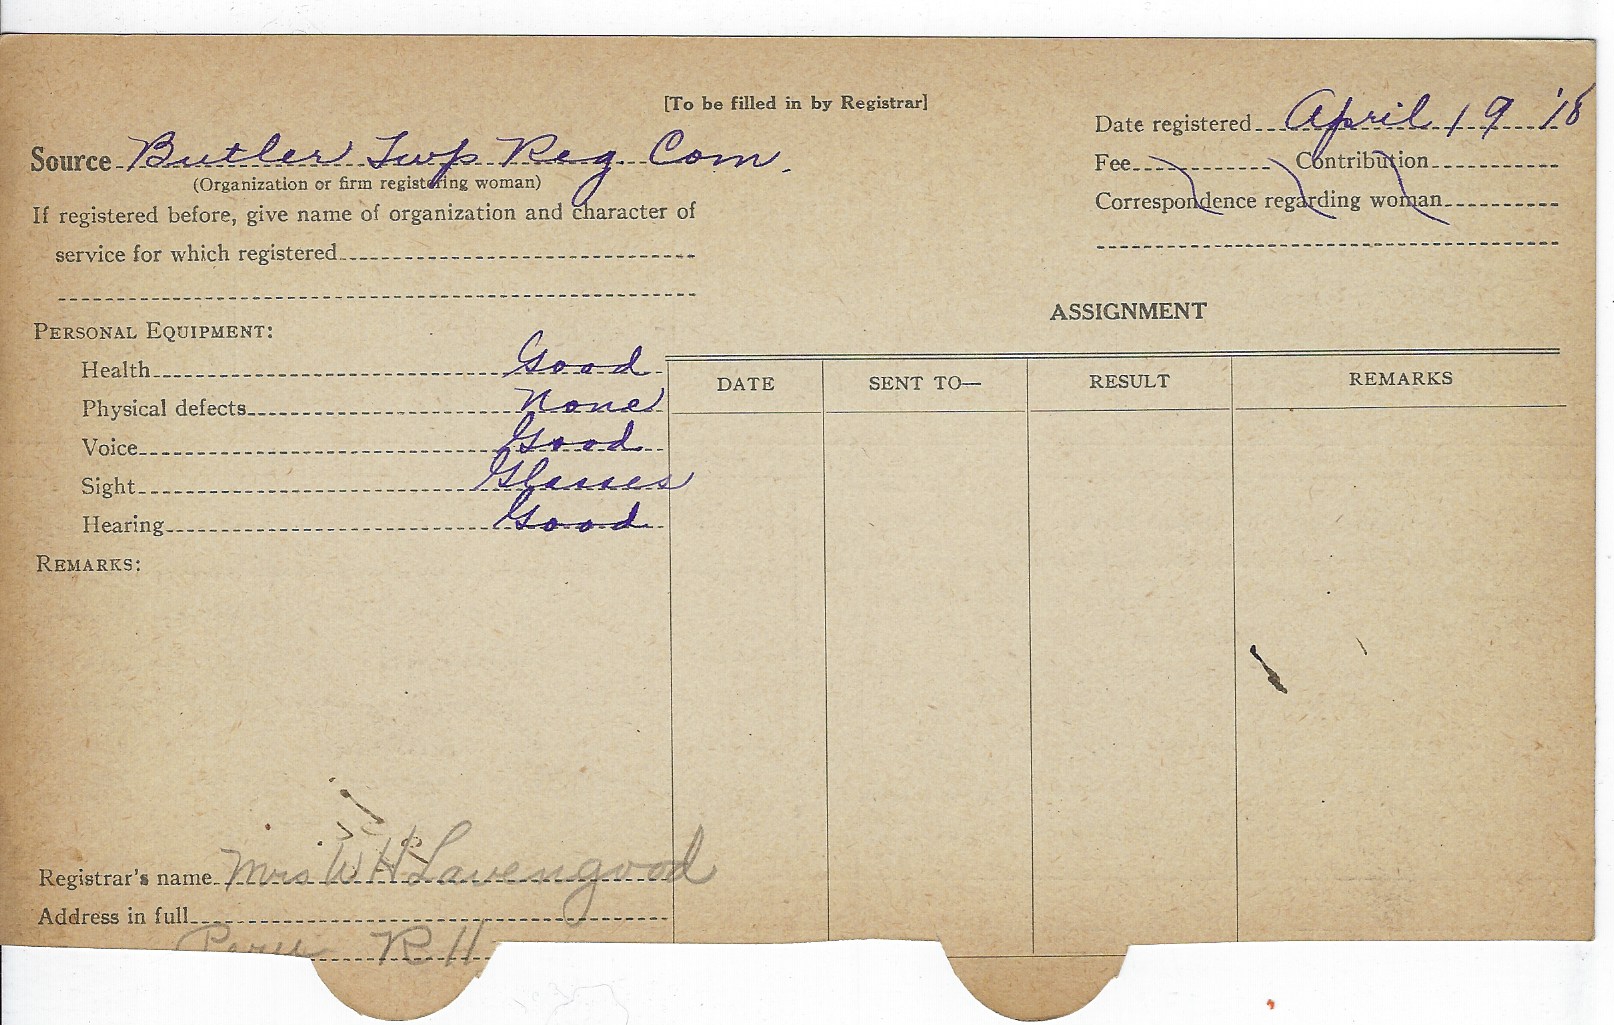 [To be filled in by Registrar]
Date registered April 19 '18
Source Butler Twp Reg. Com.
(Organization or firm registering woman)
Fee Contribution
Correspondence regarding woman
If registered before, give name of organization and character of
service for which registered
ASSIGNMENT
PERSONAL EQUIPMENT:
Health Good
Physical defects None
Voice Good
Sight Glasses
Hearing Good
REMARKS:
DATE SENT TO— RESULT REMARKS
Registrar's name Mrs W H Lavengood
Address in full
Peru R